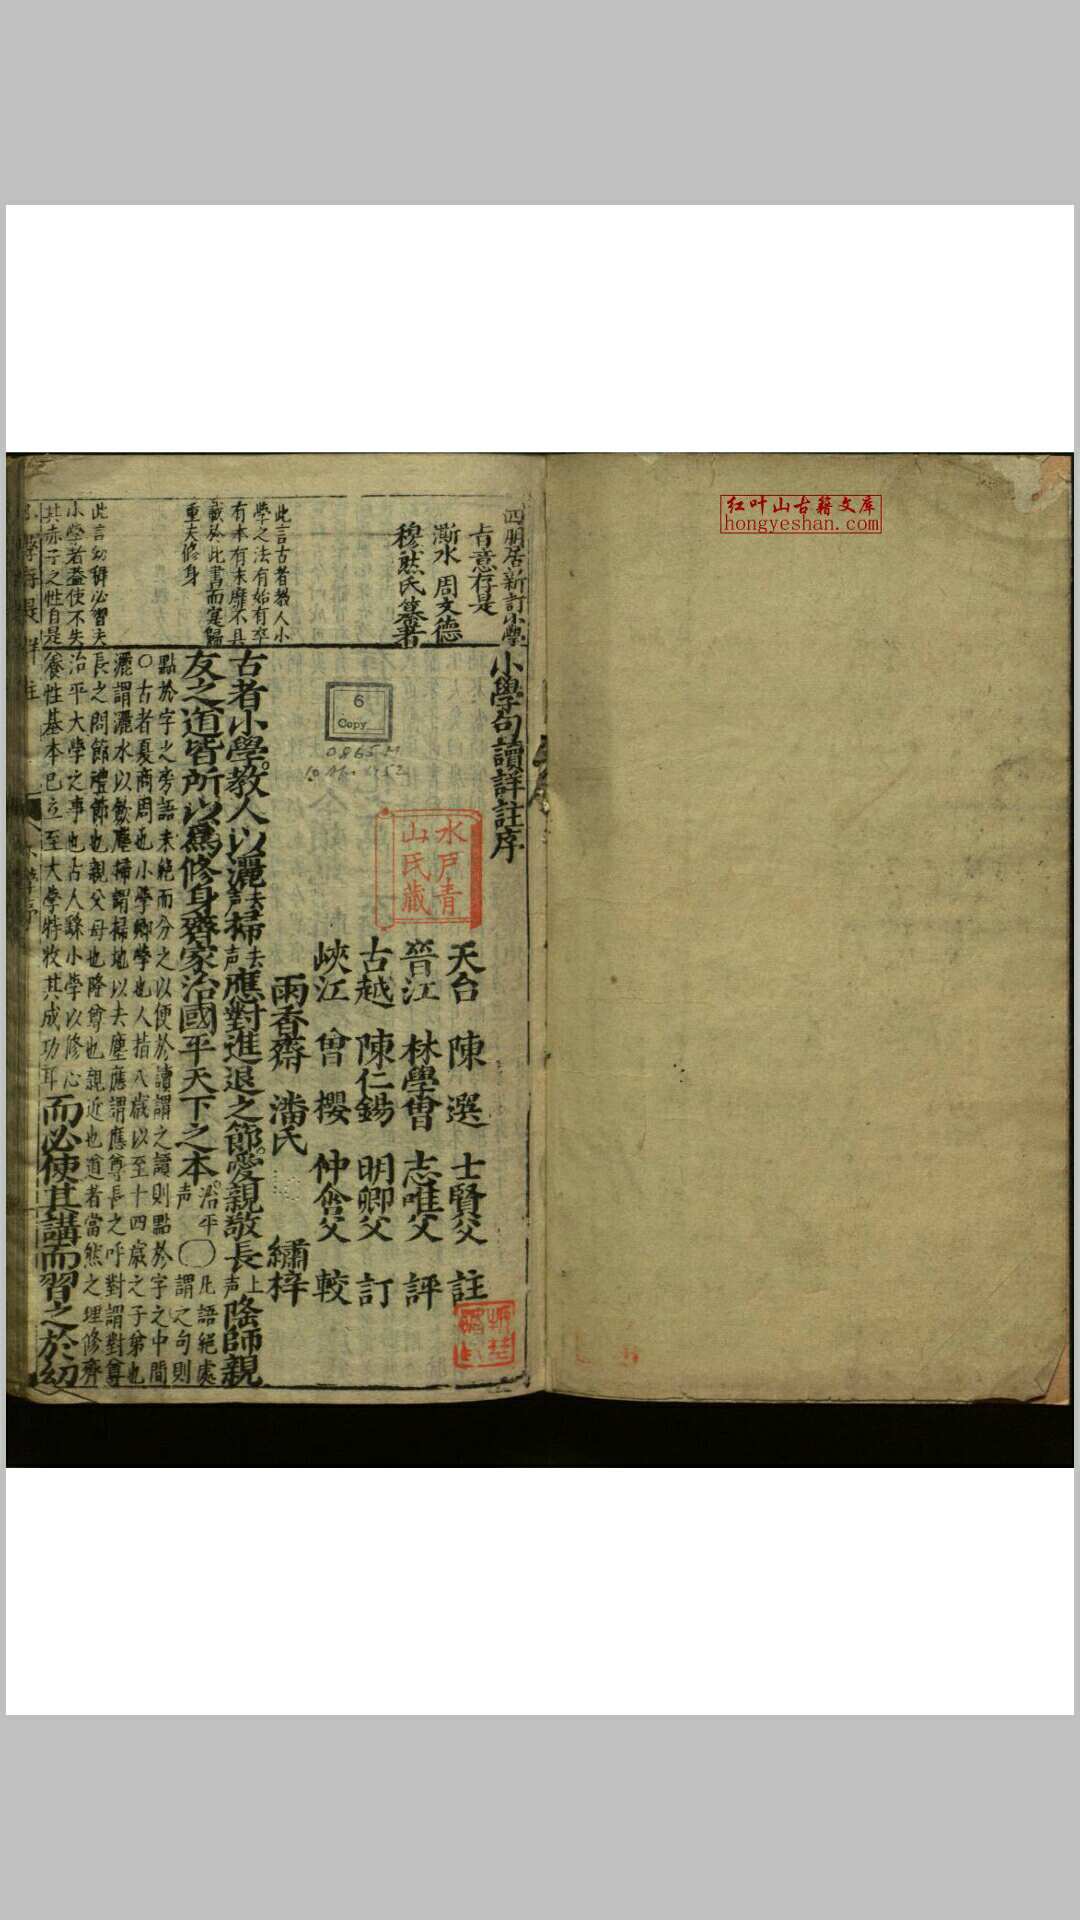 红叶山古籍文库
hongyeshan.com
四朋居新訂小學
旨意存是
澵水 周文德
穆然氏纂著
此言古者教人小
學之法有始有卒
有本有末靡不具
載於此書而寔歸
重夫修身
此言幼稺必習夫
小學者蓋使不失
其赤子之性自是
小學句讀詳註序
天台 陳選 士賢父 註
晉江 林學曾 志唯父 評
古越 陳仁錫 明卿父 訂
峽江 曾櫻 仲含父 較
雨香齋 潘氏 繡梓
古者小學教人以灑去声掃去声應對進退之節愛親敬長上声隆師親
友之道皆所以爲修身齊家治國平天下之本治平声〇凡語絕處謂之句則
點於字之旁語未絕而分之以便於讀謂之讀則點於字之中間
〇古者夏商周也小學鄉學也人指八歲以至十四歲之子弟也
灑謂灑水以飲塵掃謂掃地以去塵應謂應尊長之呼對謂對尊
長之問節禮節也親父母也隆尊也親近也道者當然之理修齊
治平大學之事也古人繇小學以修心
養性基本已立至大學特收其成功耳而必使其講而習之於幼
6
Copy
水戸青
山氏藏